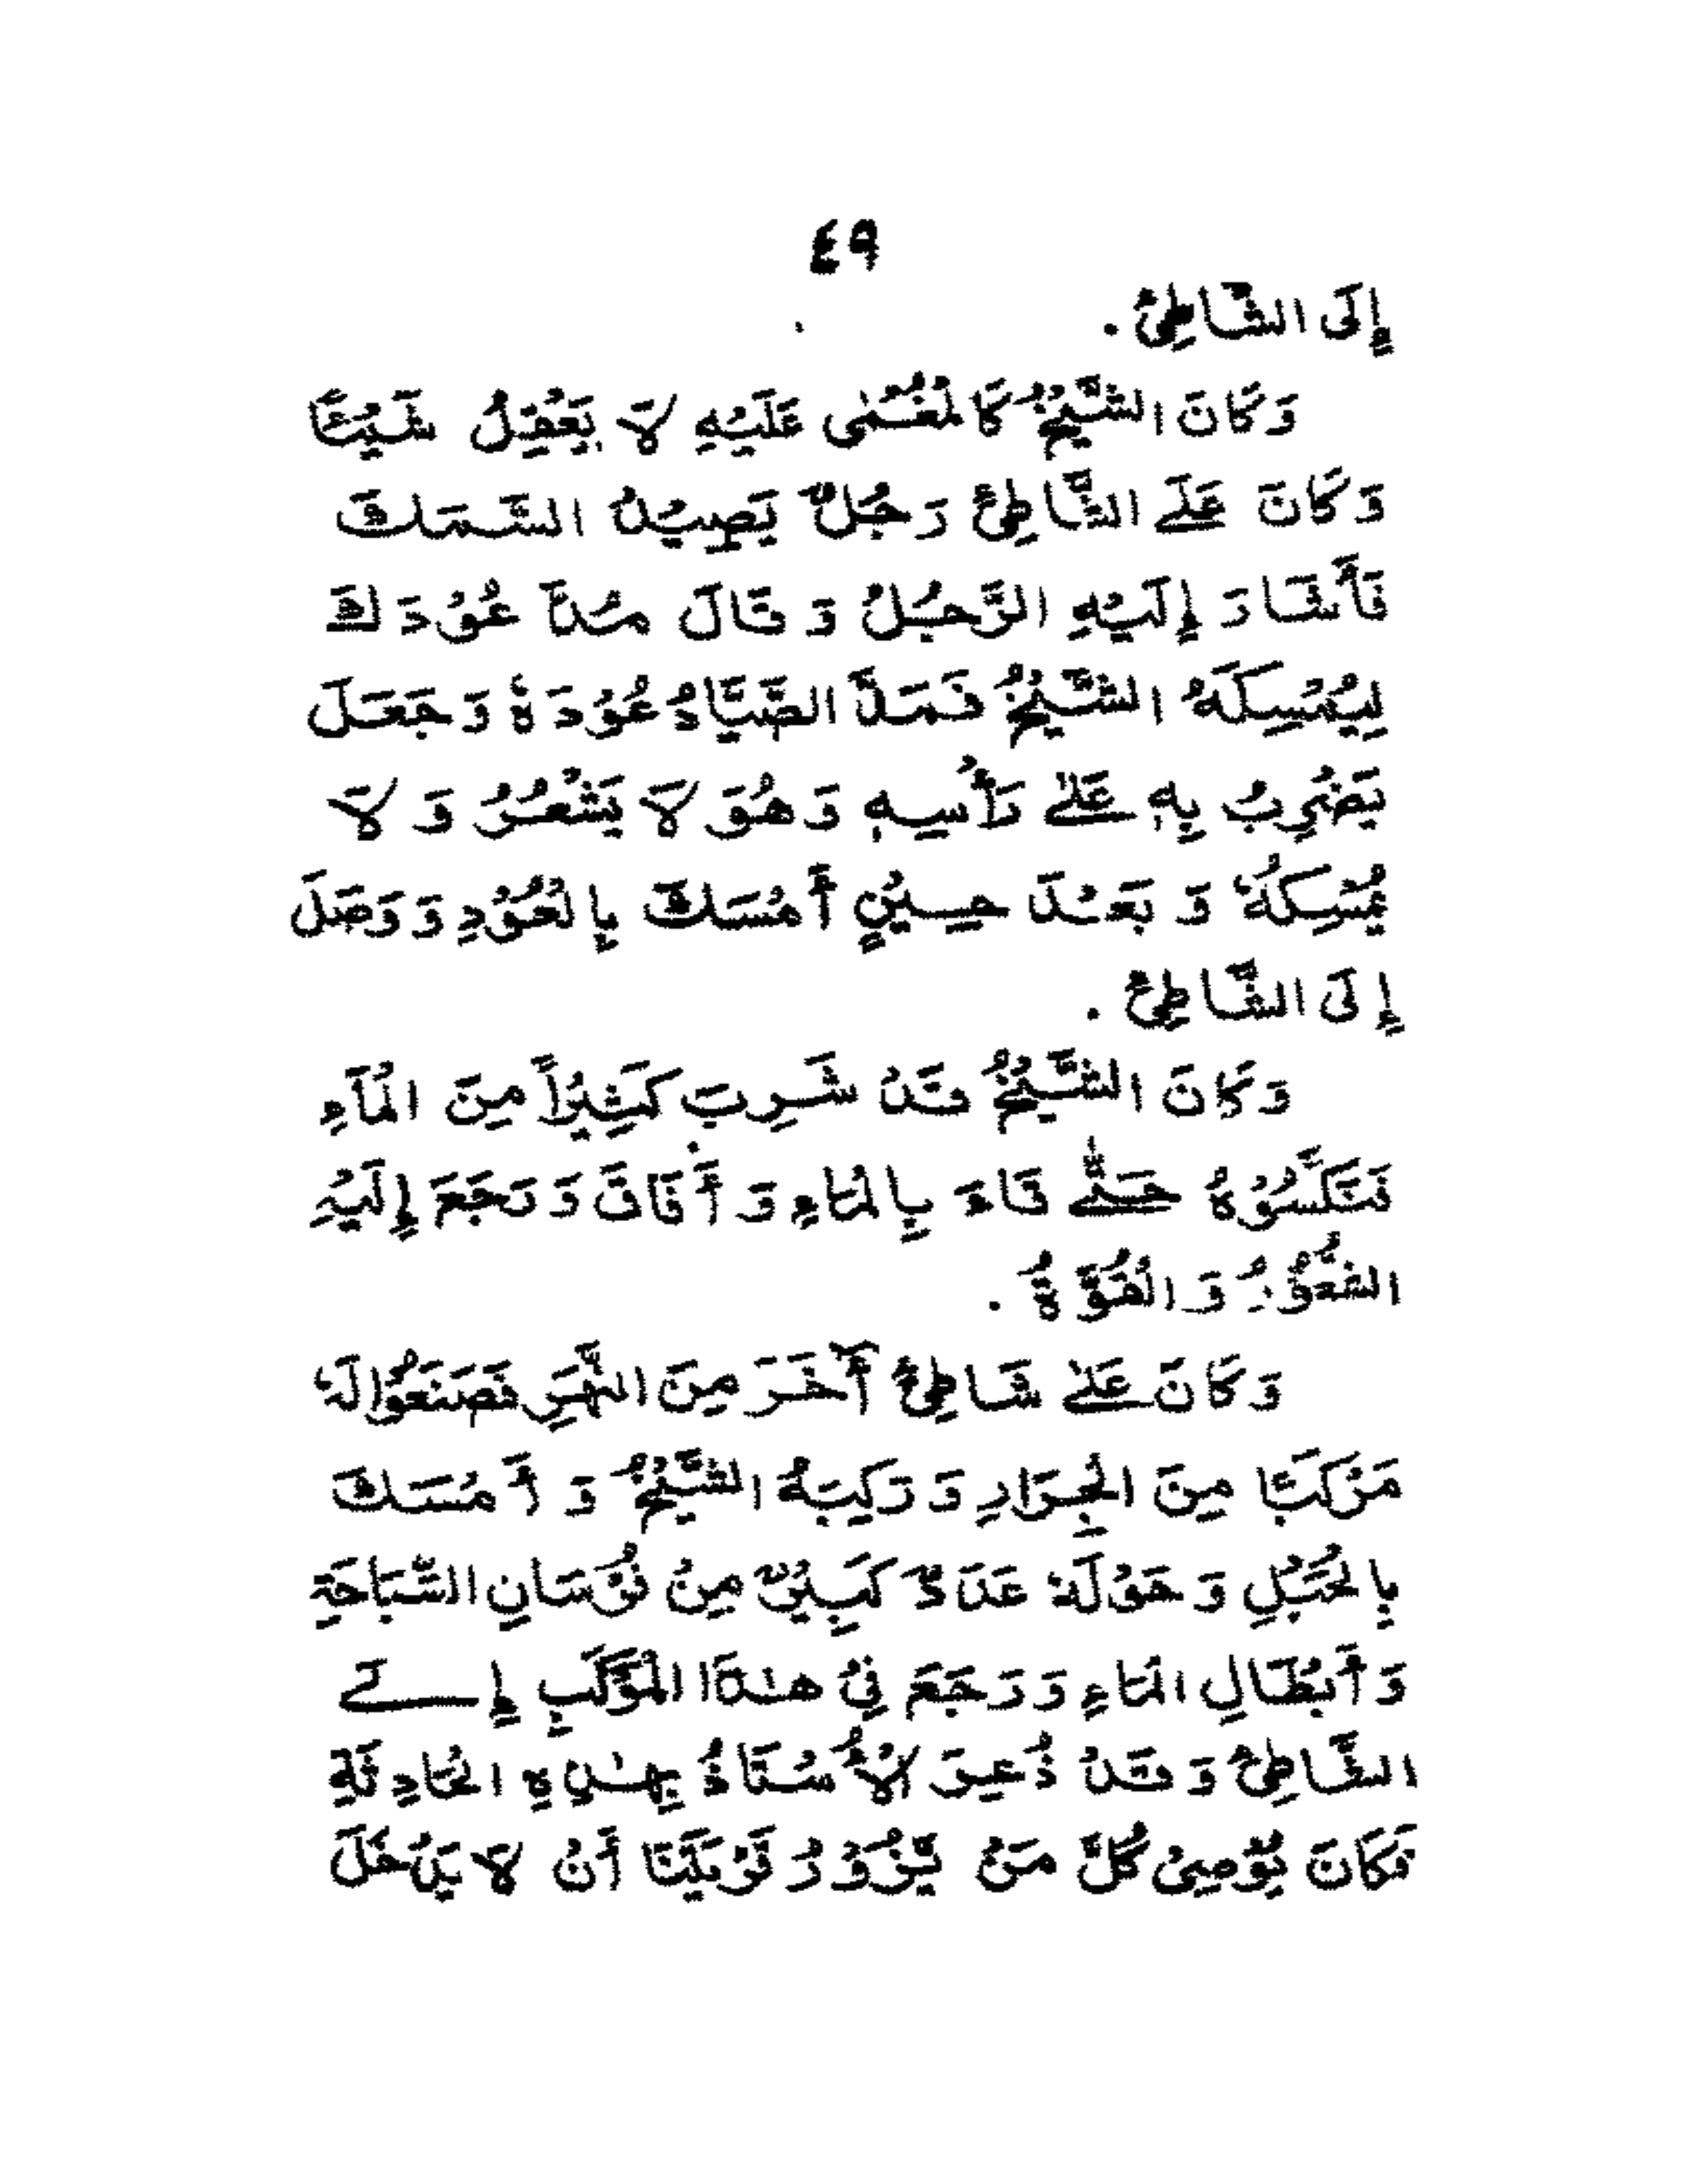 ٤٩
إِلَى الشَّاطِئِ .
وَكَانَ الشَّيْخُ كَالْمُغْمٰى عَلَيْهِ لَا يَعْقِلُ شَيْئًا
وَكَانَ عَلَى الشَّاطِئِ رَجُلٌ يَصِيْدُ السَّمَكَ
فَأَشَارَ إِلَيْهِ الرَّجُلُ وَقَالَ مُدَّ عُوْدَكَ
لِيُمْسِكَهُ الشَّيْخُ فَمَدَّ الصَّيَّادُ عُوْدَهٗ وَجَعَلَ
يَضْرِبُ بِهٖ عَلٰى رَأْسِهٖ وَهُوَ لَا يَشْعُرُ وَلَا
يُمْسِكُهٗ وَبَعْدَ حِيْنٍ أَمْسَكَ بِالْعُوْدِ وَوَصَلَ
إِلَى الشَّاطِئِ .
وَكَانَ الشَّيْخُ قَدْ شَرِبَ كَثِيْراً مِنَ الْمَآءِ
فَنَكَّسُوْهُ حَتّٰى قَاءَ بِالْمَاءِ وَأَفَاقَ وَرَجَعَ إِلَيْهِ
الشُّعُوْرُ وَالْقُوَّةُ .
وَكَانَ عَلٰى شَاطِئٍ آخَرَ مِنَ النَّهَرِ فَصَنَعُوْا لَهٗ
مَرْكَبًا مِنَ الْجِرَارِ وَرَكِبَهُ الشَّيْخُ وَأَمْسَكَ
بِالْحَبْلِ وَحَوْلَهٗ عَدَدٌ كَبِيْرٌ مِنْ فُرْسَانِ السِّبَاحَةِ
وَأَبْطَالِ الْمَاءِ وَرَجَعَ فِيْ هٰذَا الْمَوْكَبِ إِلَى
الشَّاطِئِ وَقَدْ ذُعِرَ الْأُسْتَاذُ بِهٰذِهِ الْحَادِثَةِ
فَكَانَ يُوْصِيْ كُلَّ مَنْ يَّزُوْرُ قَرْيَتَنَا أَنْ لَا يَدْخُلَ